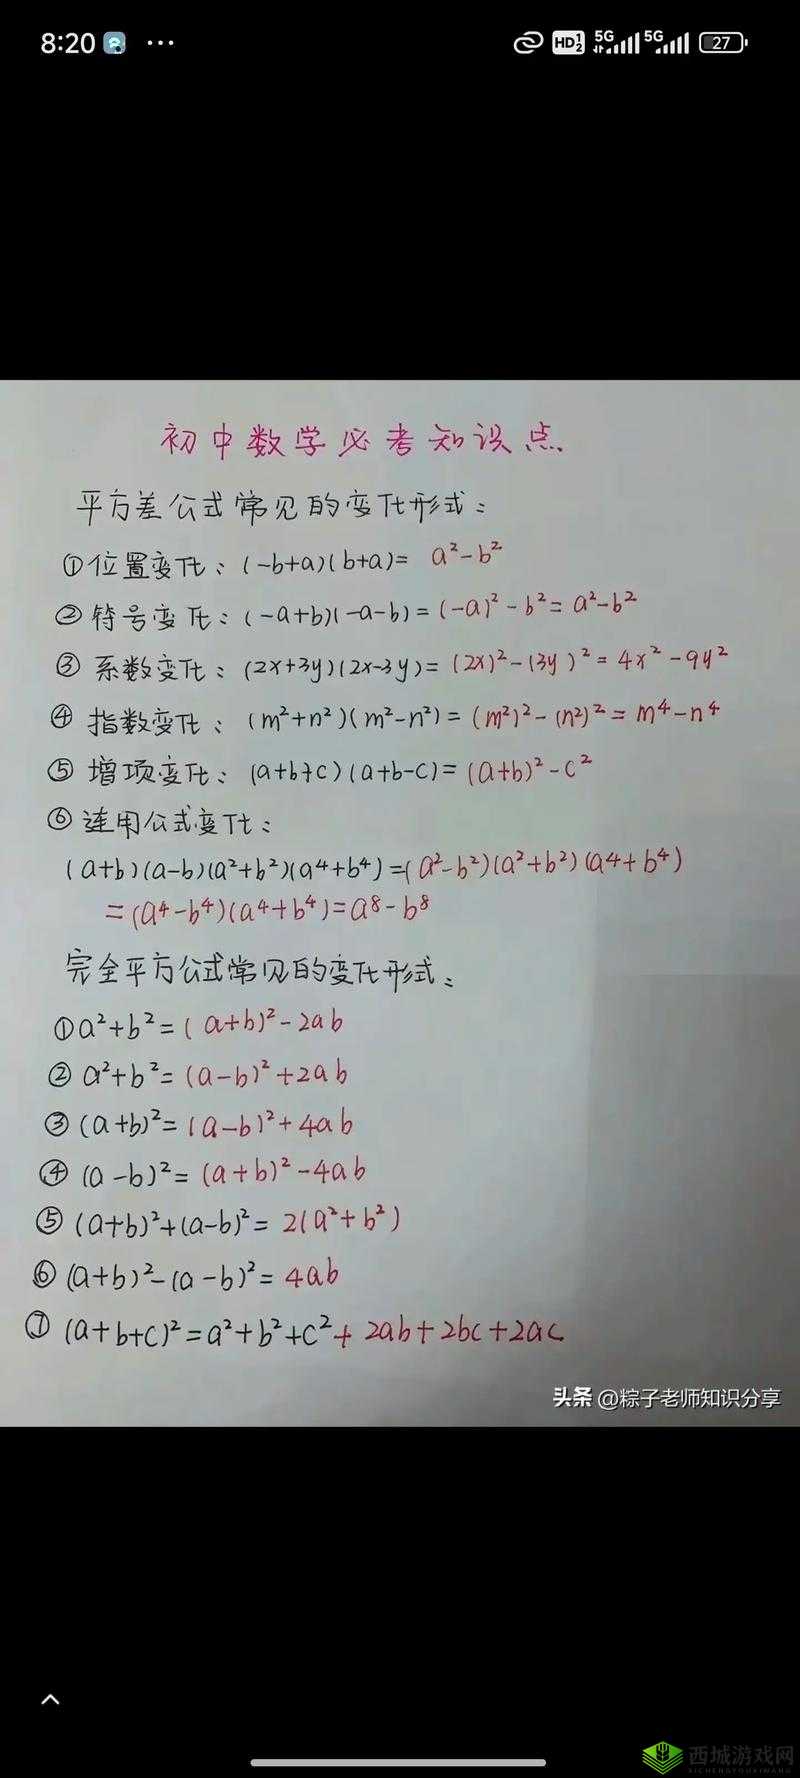 8:20 ···
HD 1 2 5G 5G 27
初中数学必考知识点
平方差公式常见的变化形式:
①位置变化:(-b+a)(b+a)= a²-b²
②符号变化:(-a+b)(-a-b)=(-a)²-b²=a²-b²
③系数变化:(2x+3y)(2x-3y)=(2x)²-(3y)²=4x²-9y²
④指数变化:(m²+n²)(m²-n²)=(m²)²-(n²)²=m⁴-n⁴
⑤增项变化:(a+b+c)(a+b-c)=(a+b)²-c²
⑥连用公式变化:
(a+b)(a-b)(a²+b²)(a⁴+b⁴)=(a²-b²)(a²+b²)(a⁴+b⁴)
=(a⁴-b⁴)(a⁴+b⁴)=a⁸-b⁸
完全平方公式常见的变化形式:
①a²+b²=(a+b)²-2ab
②a²+b²=(a-b)²+2ab
③(a+b)²=(a-b)²+4ab
④(a-b)²=(a+b)²-4ab
⑤(a+b)²+(a-b)²=2(a²+b²)
⑥(a+b)²-(a-b)²=4ab
⑦(a+b+c)²=a²+b²+c²+2ab+2bc+2ac
头条 @粽子老师知识分享
西城游戏网
XICHENGYOUXIWANG